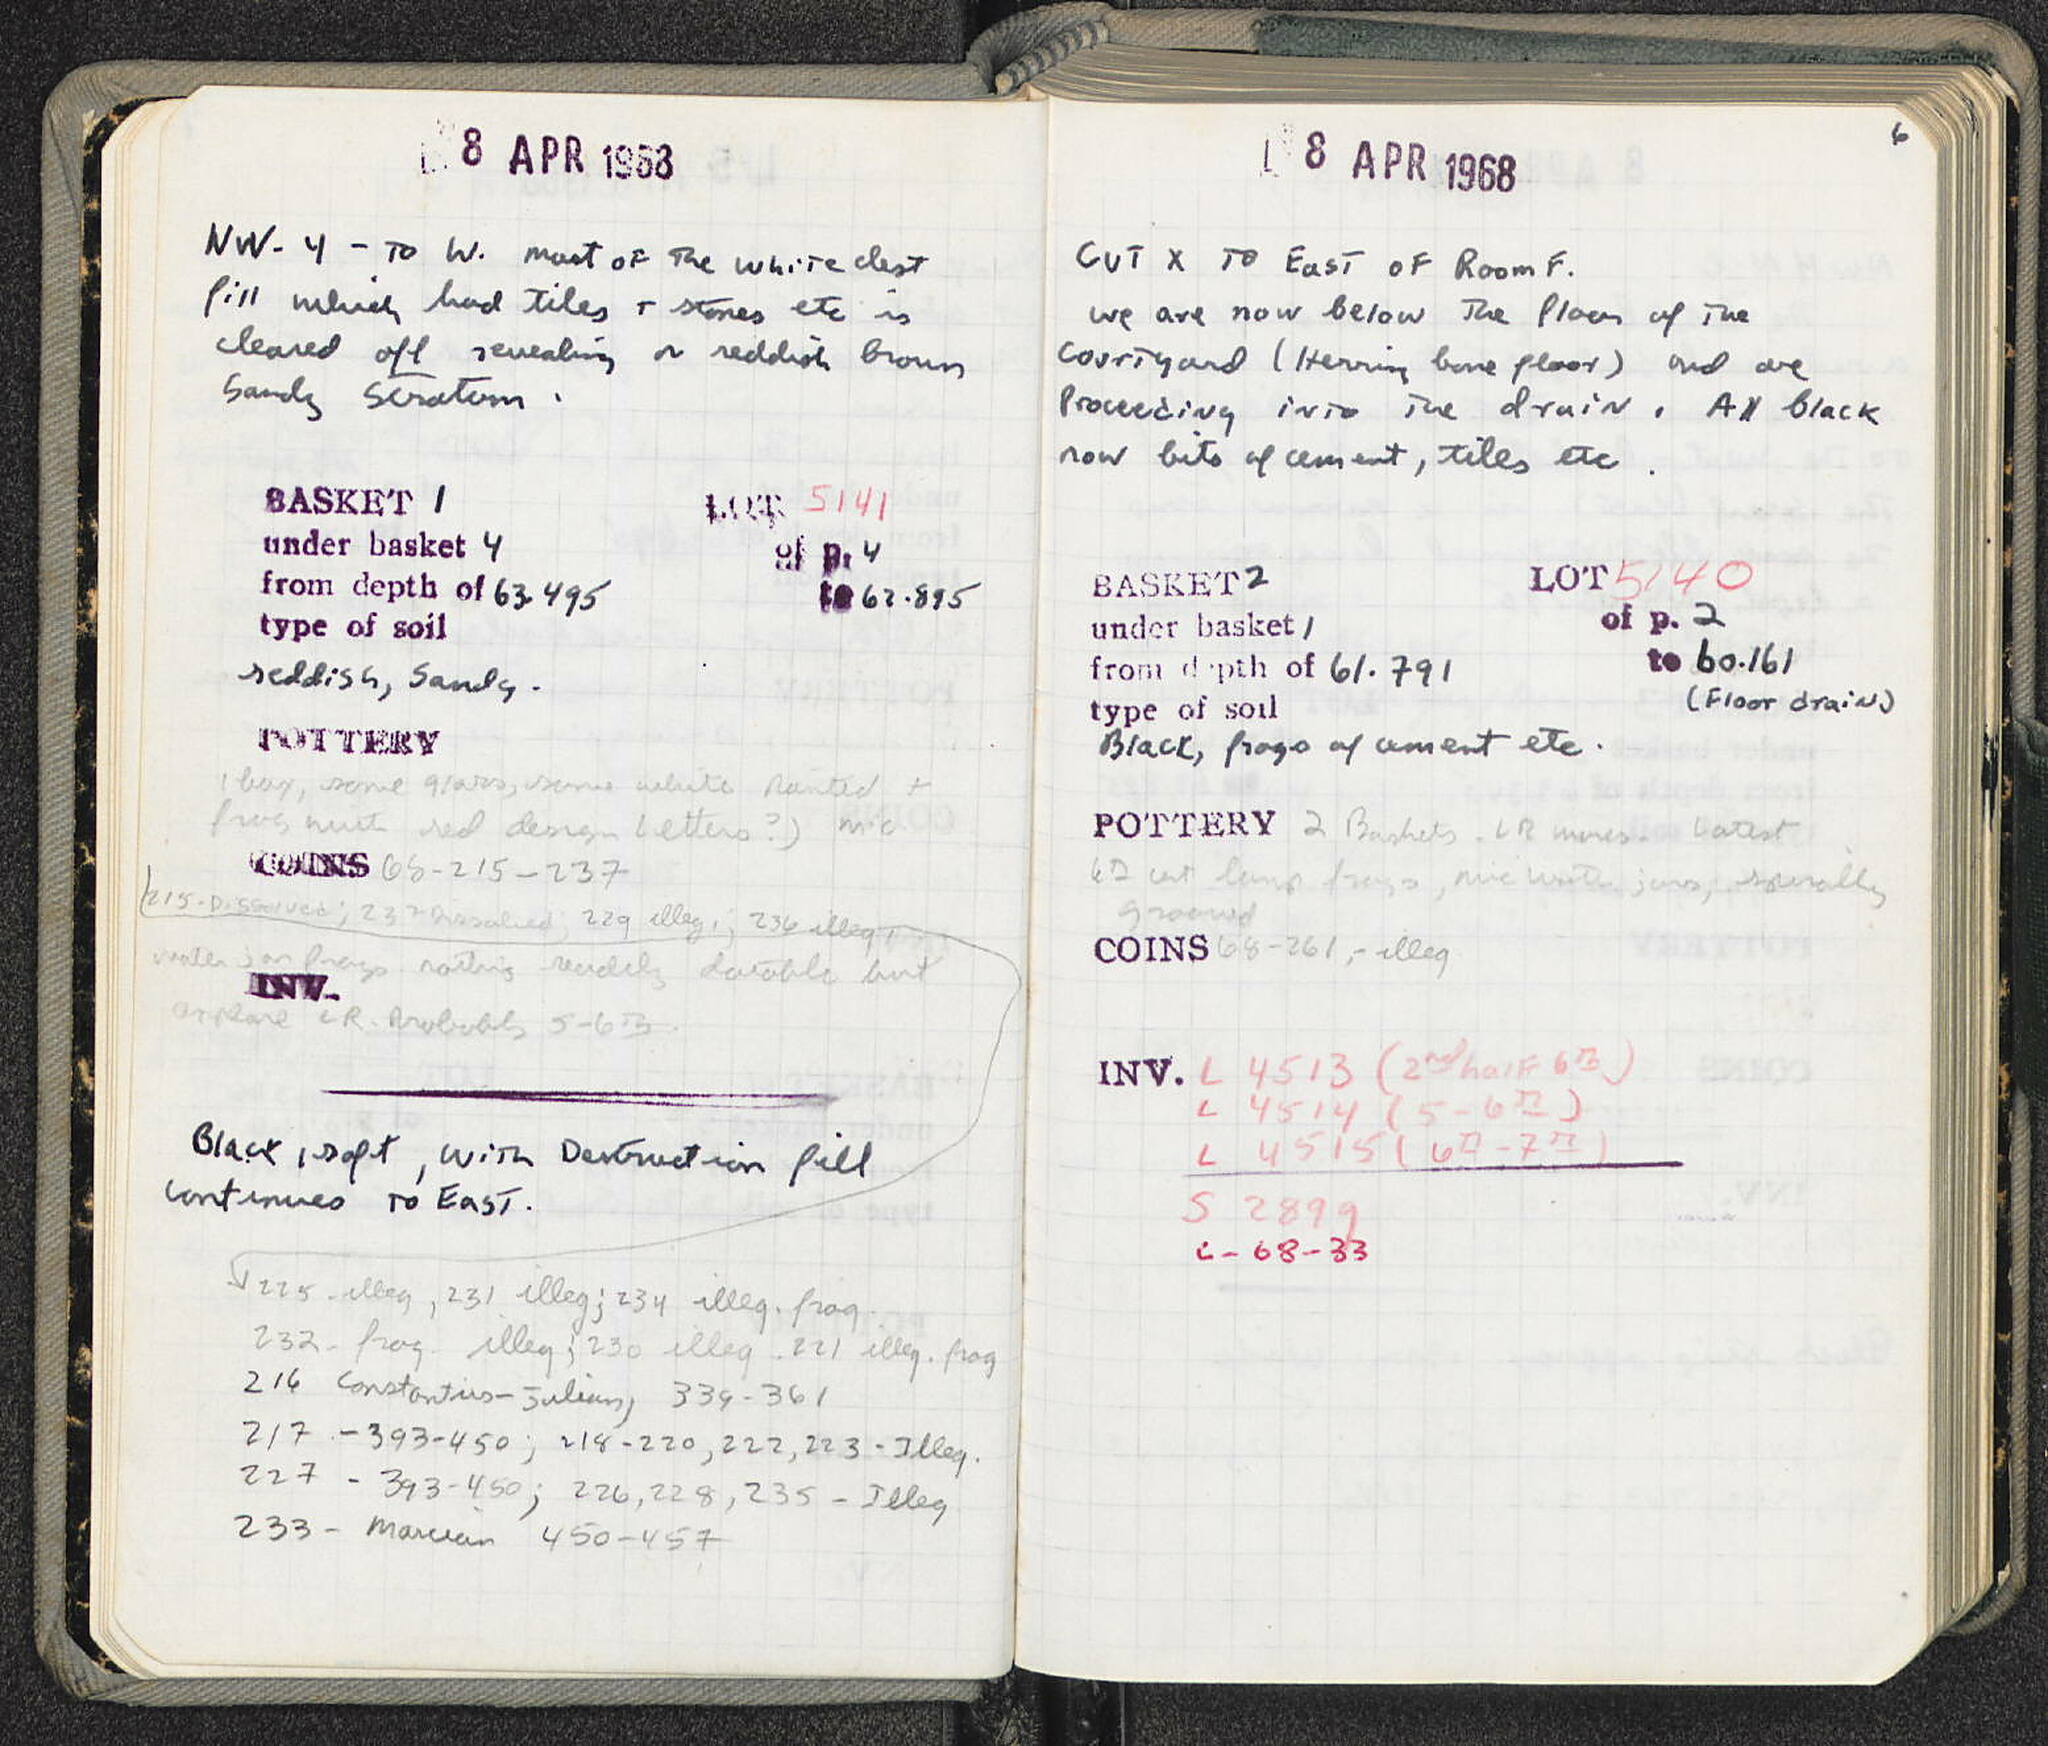 8 APR 1968
NW-4 - To W. most of the white dest
fill which had tiles + stones etc is
cleared off revealing a reddish brown
Sandy Stratum.
BASKET 1 LOT 5141
under basket 4 of p. 4
from depth of 63.495 to 62.895
type of soil
reddish, Sandy.
POTTERY
1 box, some glass, some white Painted +
frag with red design letters?)
COINS 68-215-237
215-Dissolved; 237 Dissolved; 229 illeg.; 236 illeg.
water jar frags nothing readily datable but
LR. Probably 5-6th.
INV.
Black, soft, with Destruction fill
continues to East.
225-illeg, 231 illeg; 234 illeg. frag.
232- frag illeg; 230 illeg. 221 illeg. frag
216 Constantius-Julian, 339-361
217 -393-450; 218-220, 222, 223 - Illeg.
227 - 393-450; 226, 228, 235 - Illeg
233 - Marcian 450-457
8 APR 1968
6
Cut X to East of Room F.
we are now below the floor of the
courtyard (Herring bone floor) and are
Proceeding into the drain. All black
now bits of cement, tiles etc.
BASKET 2 LOT 5140
under basket 1 of p. 2
from depth of 61.791 to 60.161
(Floor drain)
type of soil
Black, frags of cement etc.
POTTERY 2 Baskets. LR mixes. Latest
6th cnt lamp frags, mic water jars, spirally
grooved
COINS 68-261, - illeg
INV. L 4513 (2nd half 6th)
L 4514 (5-6th)
L 4515 (6th-7th)
S 2899
C-68-33